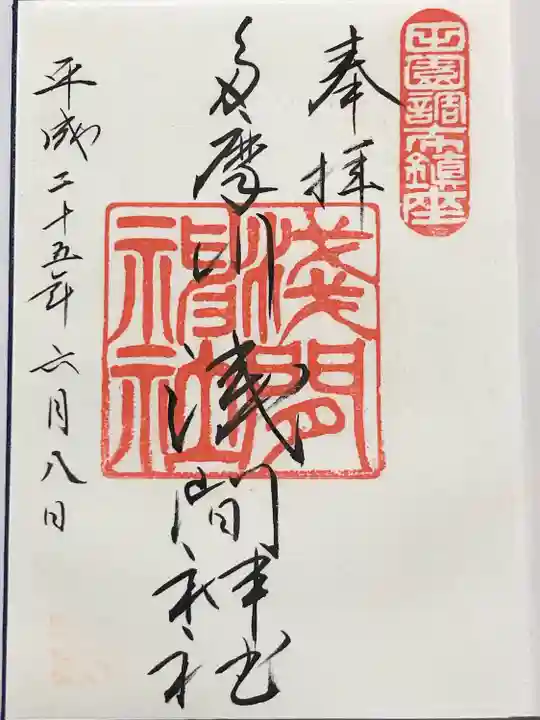 田園調布鎮座
奉拝
多摩川浅間神社
淺間神社
平成二十五年六月八日